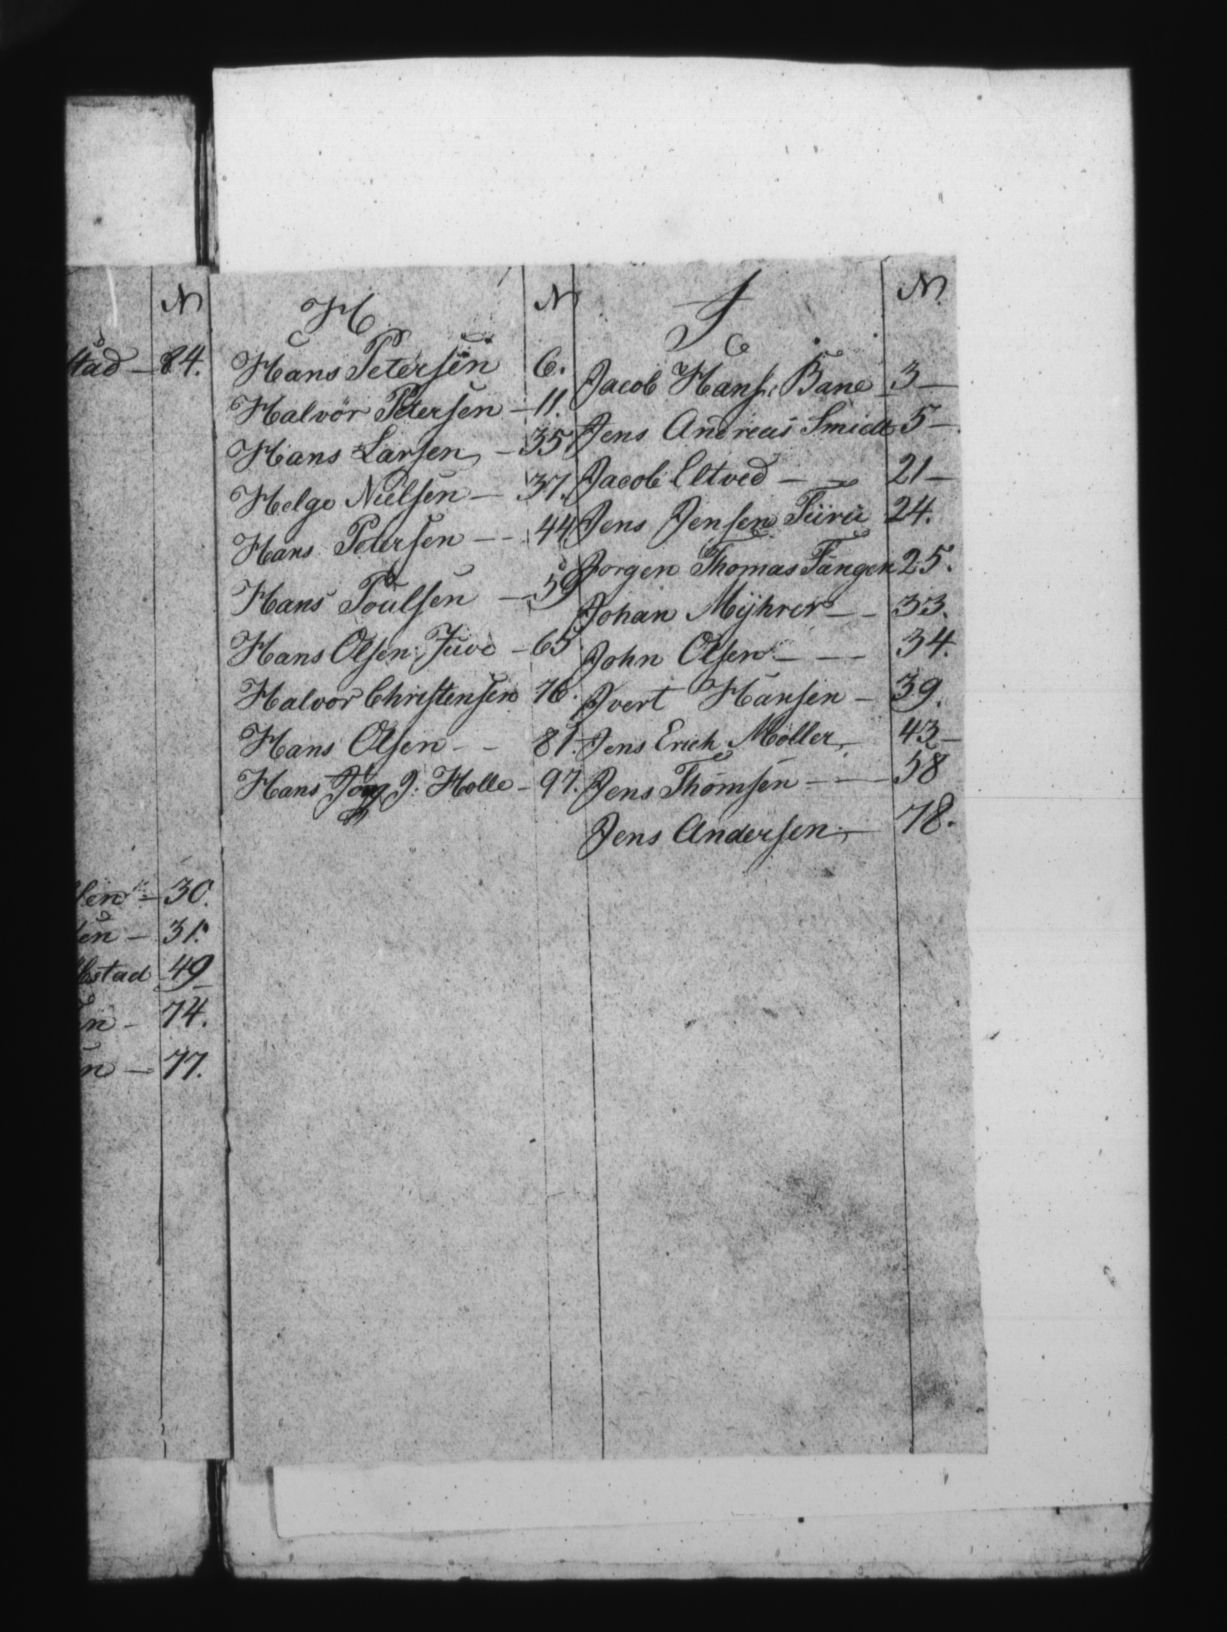 N
stad — 84.
sen — 30.
sen — 31.
stad 49
en — 74.
en — 77.
H N
Hans Petersen 6.
Halvor Petersen — 11.
Hans Larsen — 35
Helge Nielsen — 37.
Hans Petersen — 44
Hans Poulsen — 59
Hans Olsen Juve — 65
Halvor Christensen 76.
Hans Olsen — 81.
Hans J: Holle — 97.
J N
Jacob Hans: Bane 3 —
Jens Andreas Smidt 5 —
Jacob Eltved — — 21 —
Jens Jensen 24.
Jørgen Thomas Fangen 25.
Johan Mÿhrer — — 33.
John Olsen — — 34.
Jvert Hansen — 39.
Jens Erich Møller — 43 —
Jens Thomsen — — 58
Jens Andersen — 78.